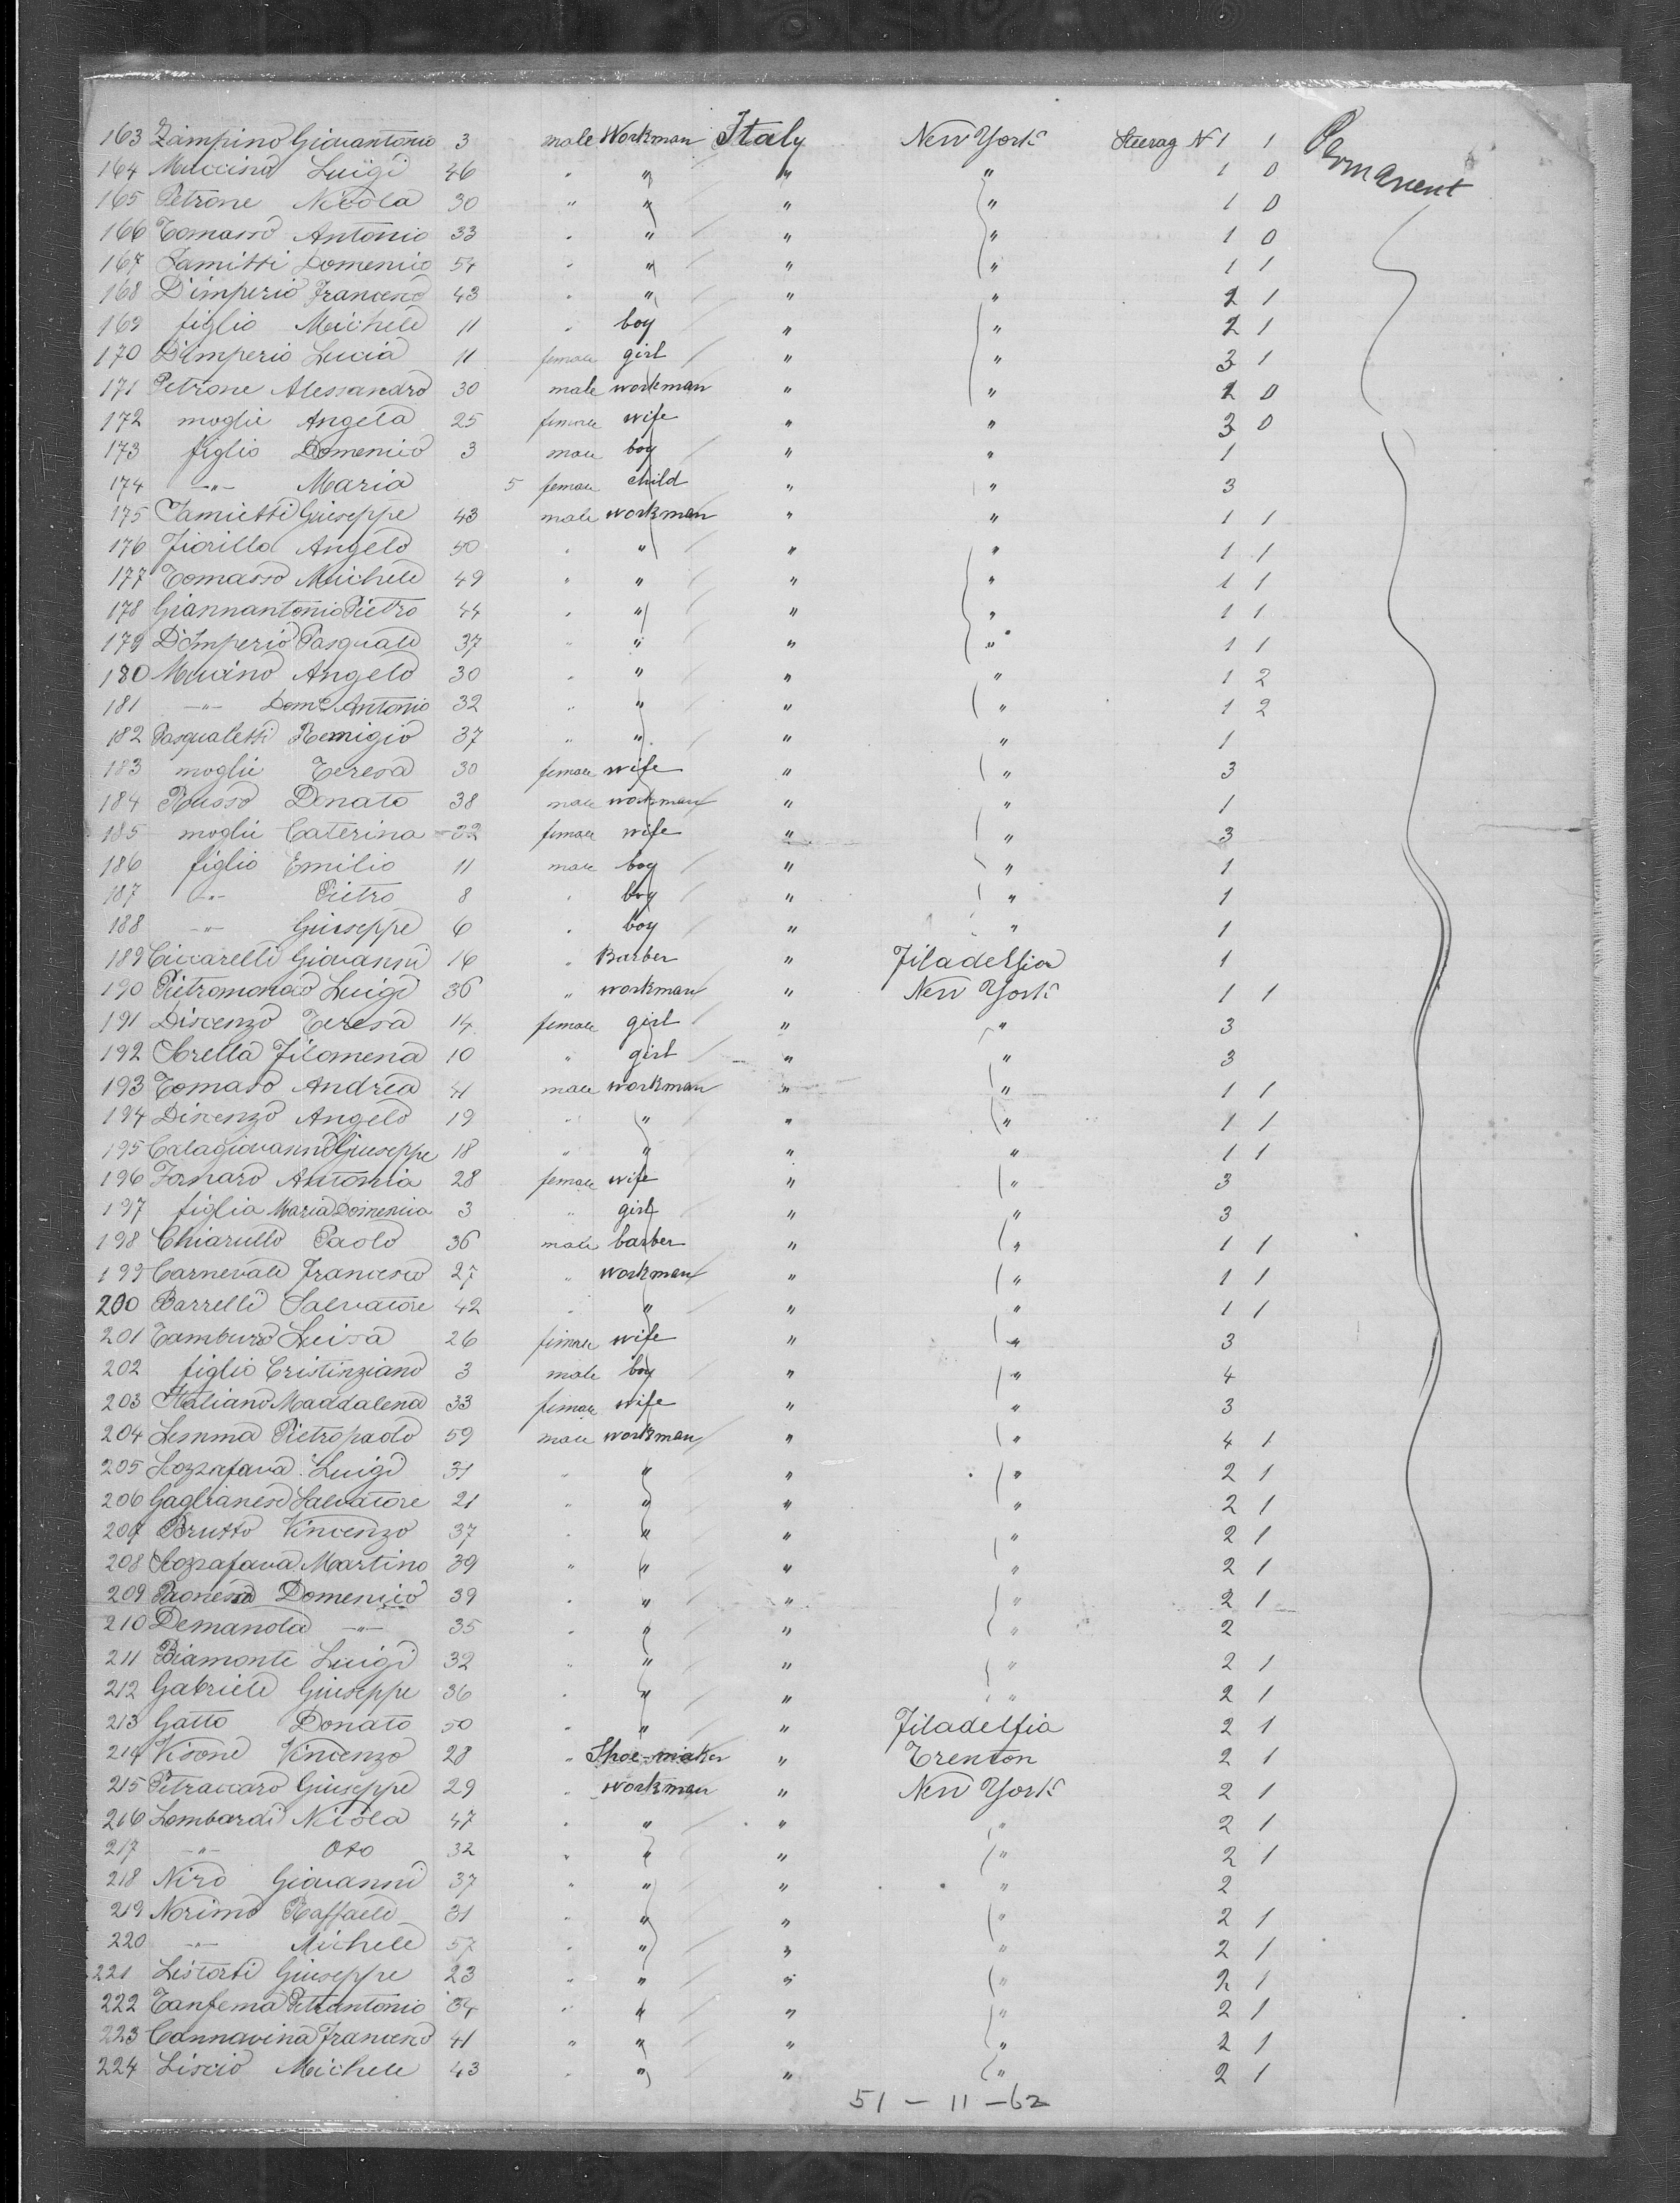 163 Zampino Giovantonio 3 male Workman Italy New York Steerag N 1 1 Permanent
164 Muccino Luigi 46 " " " " 1 0
165 Petrone Nicola 30 " " " " 1 0
166 Tomasso Antonio 33 " " " " 1 0
167 Iamitti Domenico 54 " " " " 1 1
168 D'imperio Francesco 43 " " " " 2 1
169 figlio Michele 11 " boy " " 2 1
170 D'imperio Lucia 11 female girl " " 3 1
171 Petrone Alessandro 30 male workman " " 2 0
172 moglie Angela 25 female wife " " 3 0
173 figlio Domenico 3 male boy " " 1
174 -"- Maria 5 female child " " 3
175 Iamietti Giuseppe 43 male workman " " 1 1
176 Fiorilla Angelo 50 " " " " 1 1
177 Tomasso Michele 49 " " " " 1 1
178 Giannantonio Pietro 44 " " " " 1 1
179 D'Imperio Pasquale 37 " " " " 1 1
180 Mucino Angelo 30 " " " " 1 2
181 -"- Dom Antonio 32 " " " " 1 2
182 Pasqualetti Remigio 37 " " " " 1
183 moglie Teresa 30 female wife " " 3
184 Russo Donato 38 male workman " " 1
185 moglie Caterina 32 female wife " " 3
186 figlio Emilio 11 male boy " " 1
187 -"- Pietro 8 " boy " " 1
188 -"- Giuseppe 6 " boy " " 1
189 Ciccarelli Giovanni 16 " Barber " Filadelfia 1
190 Pietromonaco Luigi 36 " workman " New York 1 1
191 Discenzo Teresa 14 female girl " " 3
192 Sorella Filomena 10 " girl " " 3
193 Tomaso Andrea 41 male workman " " 1 1
194 Discenzo Angelo 19 " " " " 1 1
195 Calagiovanni Giuseppe 18 " " " " 1 1
196 Fornaro Antonia 28 female wife " " 3
197 figlia Maria Domenica 3 " girl " " 3
198 Chiarullo Paolo 36 male barber " " 1 1
199 Carnevale Francesco 27 " workman " " 1 1
200 Barrelli Salvatore 42 " " " " 1 1
201 Tamburro Luisa 26 female wife " " 3
202 figlio Cristinziano 3 male boy " " 4
203 Italiano Maddalena 33 female wife " " 3
204 Lemma Pietropaolo 59 male workman " " 4 1
205 Scozzafava Luigi 31 " " " " 2 1
206 Gaglianese Salvatore 21 " " " " 2 1
207 Brutto Vincenzo 37 " " " " 2 1
208 Scozzafava Martino 39 " " " " 2 1
209 Domenico 39 " " " " 2 1
210 Demanola -"- 35 " " " " 2
211 Biamonte Luigi 32 " " " " 2 1
212 Gabriele Giuseppe 36 " " " " 2 1
213 Gatto Donato 50 " " " Filadelfia 2 1
214 Visone Vincenzo 28 " Shoe-maker " Trenton 2 1
215 Petraccaro Giuseppe 29 " workman " New York 2 1
216 Lombardi Nicola 47 " " " " 2 1
217 -"- Oto 32 " " " " 2 1
218 Niro Giovanni 37 " " " " 2
219 Norimo Raffaele 31 " " " " 2 1
220 -"- Michele 57 " " " " 2 1
221 Listorti Giuseppe 23 " " " " 2 1
222 Tanfema Pettantonio 34 " " " " 2 1
223 Cannavina Francesco 41 " " " " 2 1
224 Liscio Michele 43 " " " " 2 1
51 - 11 - 62